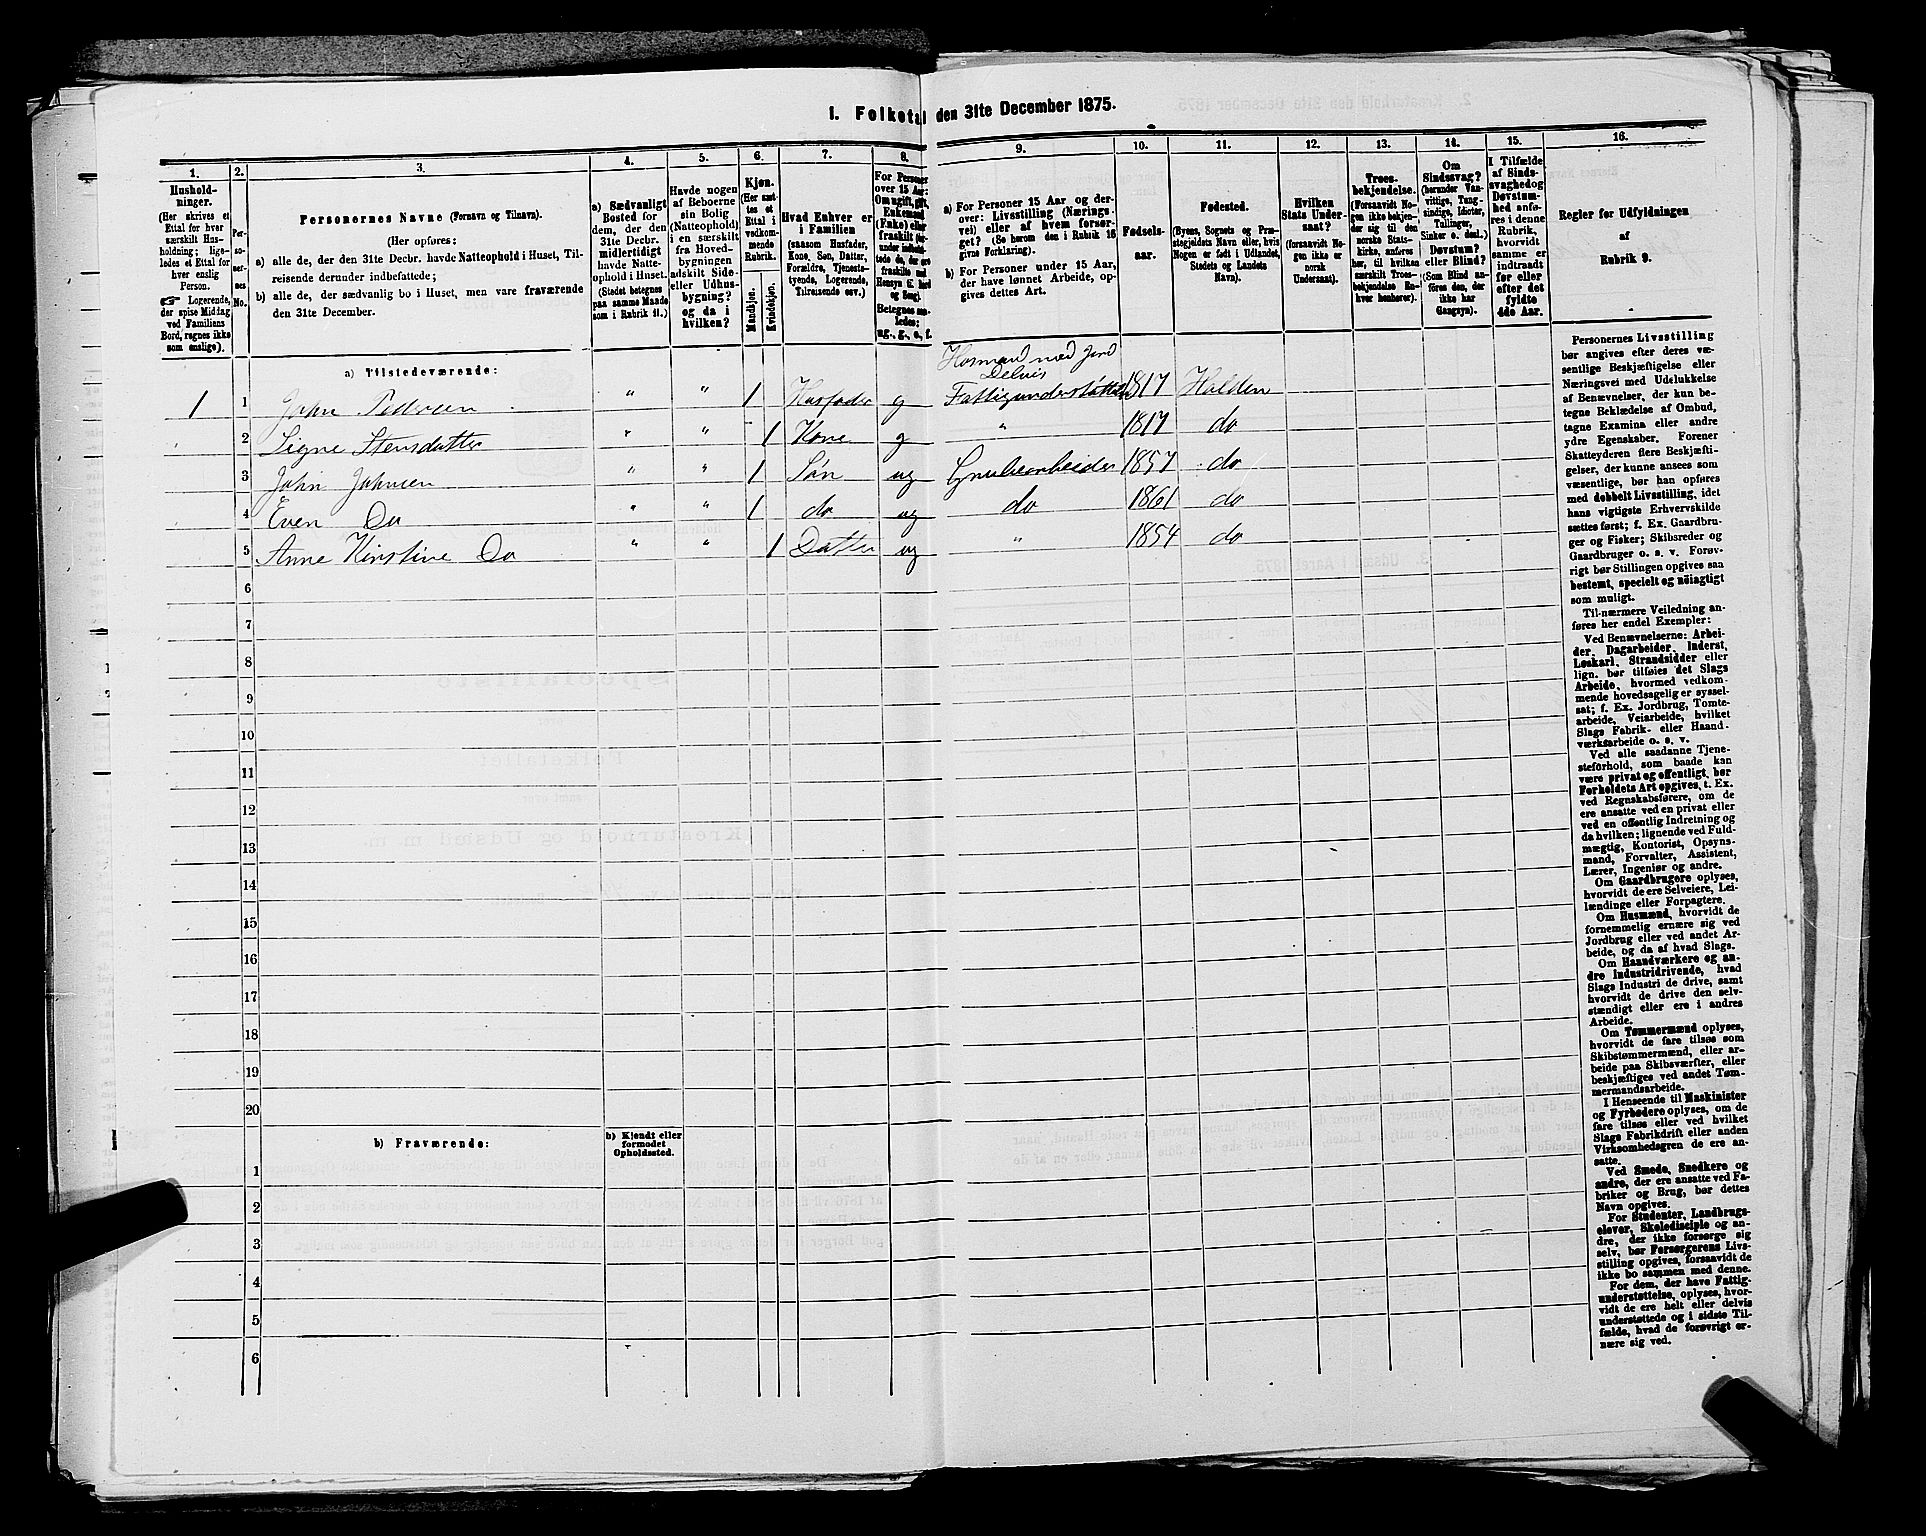 1. Folketal den 31te December 1875.
1.
Hushold-
ninger.
(Her skrives et
Ettal for hver
særskilt Hus-
holdning; lige-
ledes et Ettal for
hver enslig
Person.
☞ Logerende,
der spise Middag
ved Familiens
Bord, regnes ikke
som enslige).
2.
Per-
so-
ner-
nes
No.
3.
Personernes Navne (Fornavn og Tilnavn).
(Her opføres:
a) alle de, der den 31te Decbr. havde Natteophold i Huset, Til-
reisende derunder indbefattede;
b) alle de, der sædvanlig bo i Huset, men vare fraværende
den 31te December.
4.
a) Sædvanligt
Bosted for
dem, der den
31te Decbr.
midlertidigt
havde Natte-
ophold i Huset.
(Stedet betegnes
paa samme Maade
som i Rubrik 11.)
5.
Havde nogen
af Beboerne
sin Bolig
(Natteophold)
i en særskilt
fra Hoved-
bygningen
adskilt Side-
eller Udhus-
bygning?
og da i
hvilken?
6.
Kjøn.
(Her sæt-
tes et
Ettal i
vedkom-
mende
Rubrik.
Mandkjøn.
Kvindekjøn.
7.
Hvad Enhver er
i Familien
(saasom Husfader,
Kone, Søn, Datter,
Forældre, Tjeneste-
tyende, Logerende,
Tilreisende osv.)
8.
For Personer
over 15 Aar:
Om ugift, gift,
Enkemand
(Enke) eller
fraskilt
Betegnes saa-
ledes:
ug., g., e., f.
9.
a) For Personer 15 Aar og der-
over: Livsstilling (Nærings-
vei) eller af hvem forsør-
get? (Se herom den i Rubrik 16
givne Forklaring).
b) For Personer under 15 Aar,
der have lønnet Arbeide, op-
gives dettes Art.
10.
Fødsels-
aar.
11.
Fødested.
(Byens, Sognets og Præ-
stegjeldets Navn eller, hvis
Nogen er født i Udlandet,
Stedets og Landets
Navn).
12.
Hvilken
Stats Under-
saat?
(forsaavidt No-
gen ikke er
norsk
Undersaat).
13.
Troes-
bekjendelse.
(Forsaavidt No-
gen ikke bekjen-
der sig til den
norske Stats-
kirke, anføres
her, til hvilken
særskilt Troes-
bekjendelse En-
hver henhører).
14.
Om
Sindssvag?
(herunder Van-
vittige, Tung-
sindige, Idioter,
Tullinger,
Sinker o. desl.)
Døvstum?
eller Blind?
(Som Blind an-
føres den, der
ikke har
Gangsyn).
15.
I Tilfælde
af Sinds-
svaghed og
Døvstum-
hed anfø-
res i denne
Rubrik,
hvorvidt
samme er
indtraadt
før eller
efter det
fyldte
4de Aar.
16.
Regler for Udfyldningen
af
Rubrik 9.
a) Tilstedeværende:
Husmand med Jord
Delvis
1 1 John Pedersen " " 1 Husfader g Fattigunderstøttet 1817 Halden
2 Signe Stensdatter " " 1 Kone g " 1817 do
3 John Johnsen " " 1 Søn ug Grubearbeider 1857 do
4 Even Do " " 1 do ug do 1861 do
5 Anne Kirstine Do " " 1 Datter ug " 1854 do
6
7
8
9
10
11
12
13
14
15
16
17
18
19
20
b) Fraværende:
b) Kjendt eller
formodet
Opholdssted.
1
2
3
4
5
6
Personernes Livsstilling
bør angives efter deres væ-
sentlige Beskjæftigelse eller
Næringsvei med Udelukkelse
af Benævnelser, der kun be-
tegne Beklædelse af Ombud,
tagne Examina eller andre
ydre Egenskaber. Forener
Skatteyderen flere Beskjæfti-
gelser, der kunne ansees som
væsentlige, bør han opføres
med dobbelt Livsstilling, idet
hans vigtigste Erhvervskilde
sættes først; f. Ex. Gaardbru-
ger og Fisker; Skibsreder og
Gaardbruger o. s. v. Forøv-
rigt bør Stillingen opgives saa
bestemt, specielt og nøiagtigt
som muligt.
Til nærmere Veiledning an-
føres her endel Exempler:
Ved Benævnelserne: Arbei-
der, Dagarbeider, Inderst,
Løskarl, Strandsidder eller
lign. bør tilføies det Slags
Arbeide, hvormed vedkom-
mende hovedsagelig er syssel-
sat; f. Ex. Jordbrug, Tomte-
arbeide, Veiarbeide, hvilket
Slags Fabrik- eller Haand-
værksarbeide o. s. v.
Ved alle saadanne Tjene-
steforhold, som baade kan
være privat og offentligt, bør
Forholdets Art opgives, t. Ex.
ved Regnskabsførere, om de
ere ansatte ved en privat eller
ved en offentlig Indretning og
da hvilken; lignende ved Fuld-
mægtig, Kontorist, Opsyns-
mand, Forvalter, Assistent,
Lærer, Ingeniør og andre.
Om Gaardbrugere oplyses,
hvorvidt de ere Selveiere, Lei-
lændinge eller Forpagtere.
Om Husmænd, hvorvidt de
fornemmelig ernære sig ved
Jordbrug eller ved andet Ar-
beide, og da af hvad Slags.
Om Haandværkere og an-
dre Industridrivende, hvad
Slags Industri de drive, samt
hvorvidt de drive den selv-
stændigt eller ere i andres
Arbeide.
Om Tømmermænd oplyses,
hvorvidt de fare tilsøs som
Skibstømmermænd, eller ar-
beide paa Skibsværfter, eller
beskjæftiges ved andet Tøm-
mermandsarbeide.
I Henseende til Maskinister
og Fyrbødere oplyses, om de
fare tilsøs eller ved hvilket
Slags Fabrikdrift eller anden
Virksomhedsgren de ere an-
satte.
Ved Smede, Snedkere og
andre, der ere ansatte ved Fa-
briker og Brug, bør dettes
Navn opgives.
For Studenter, Landbrugs-
elever, Skoledisciple og an-
dre, der ikke forsørge sig
selv, bør Forsørgerens Livs-
stilling opgives, forsaavidt de
ikke bo sammen med denne.
For dem, der have Fattig-
understøttelse, oplyses, hvor-
vidt de ere helt eller delvis
understøttede og i sidste Til-
fælde, hvad de forøvrigt er-
nære sig ved.